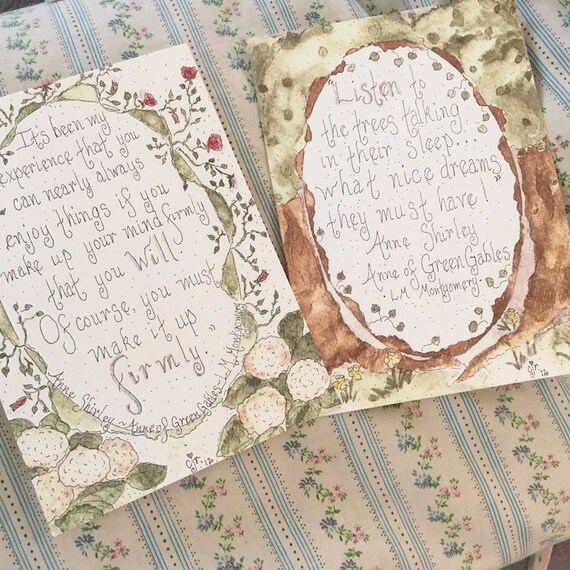 "It's been my
experience that you
can nearly always
enjoy things if you
make up your mind firmly
that you will.
Of course, you must
make it up
firmly."
Anne Shirley ~ Anne of Green Gables - L.M Montgomery
"Listen to
the trees talking
in their sleep...
what nice dreams
they must have!"
Anne Shirley
Anne of Green Gables
- L.M Montgomery